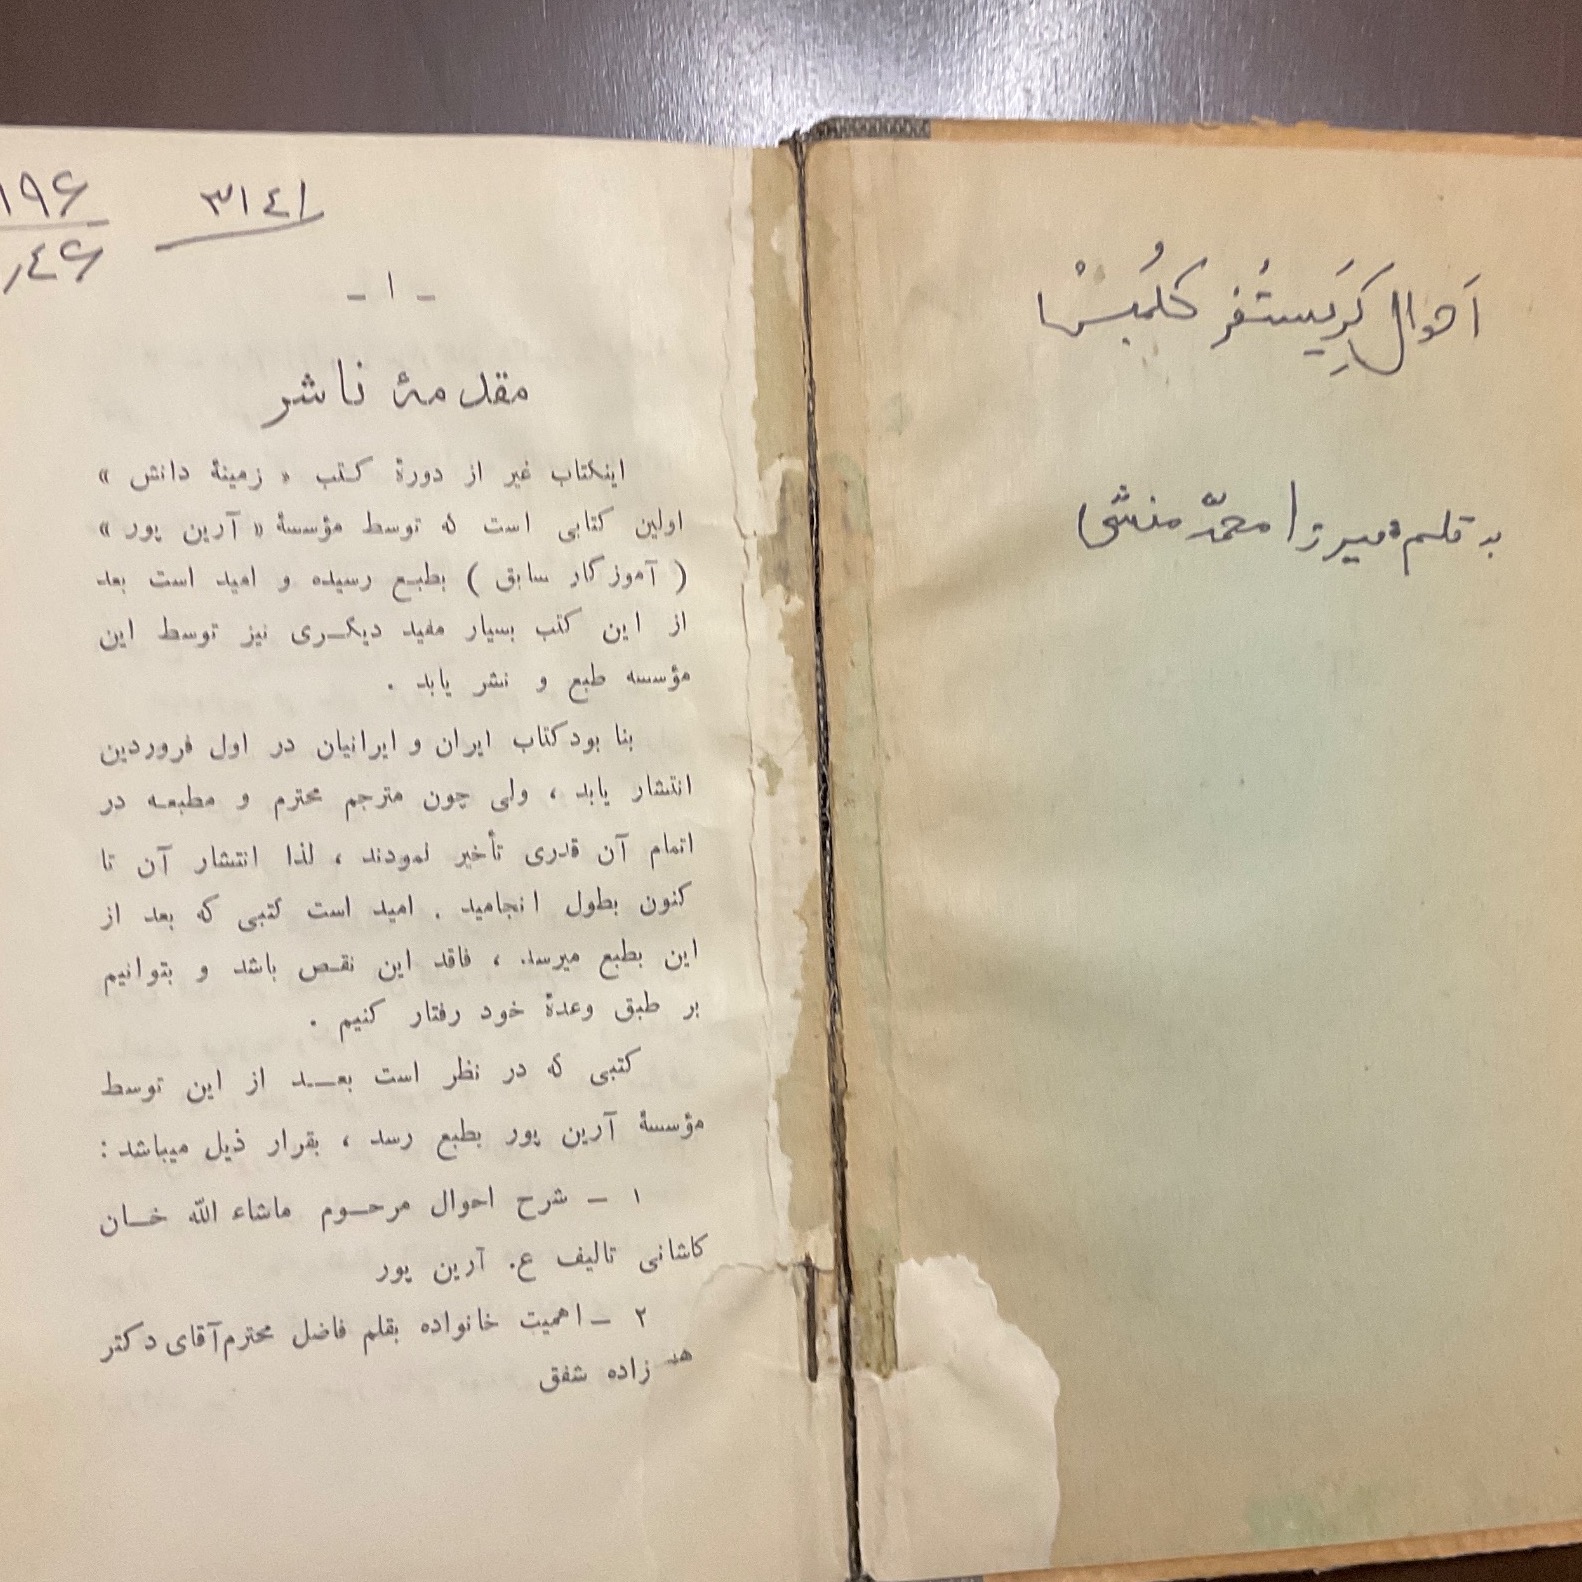 اَحوالِ کَرِیستُفر کلُمبسْ
به قلم میرزا محمّد منشی
۳۱٤۱
۱۹۶
ر٤۶
- ۱ -
مقدمهٔ ناشر
اینکتاب غیر از دورهٔ کتب « زمینهٔ دانش »
اولین کتابی است که توسط مؤسسهٔ « آرین پور »
( آموزگار سابق ) بطبع رسیده و امید است بعد
از این کتب بسیار مفید دیگری نیز توسط این
مؤسسه طبع و نشر یابد .
بنا بود کتاب ایران و ایرانیان در اول فروردین
انتشار یابد ، ولی چون مترجم محترم و مطبعه در
اتمام آن قدری تأخیر نمودند ، لذا انتشار آن تا
کنون بطول انجامید . امید است کتبی که بعد از
این بطبع میرسد ، فاقد این نقص باشد و بتوانیم
بر طبق وعدهٔ خود رفتار کنیم .
کتبی که در نظر است بعد از این توسط
مؤسسهٔ آرین پور بطبع رسد ، بقرار ذیل میباشد :
۱ – شرح احوال مرحوم ماشاء الله خان
کاشانی تالیف ع. آرین پور
۲ – اهمیت خانواده بقلم فاضل محترم آقای دکتر
زاده شفق